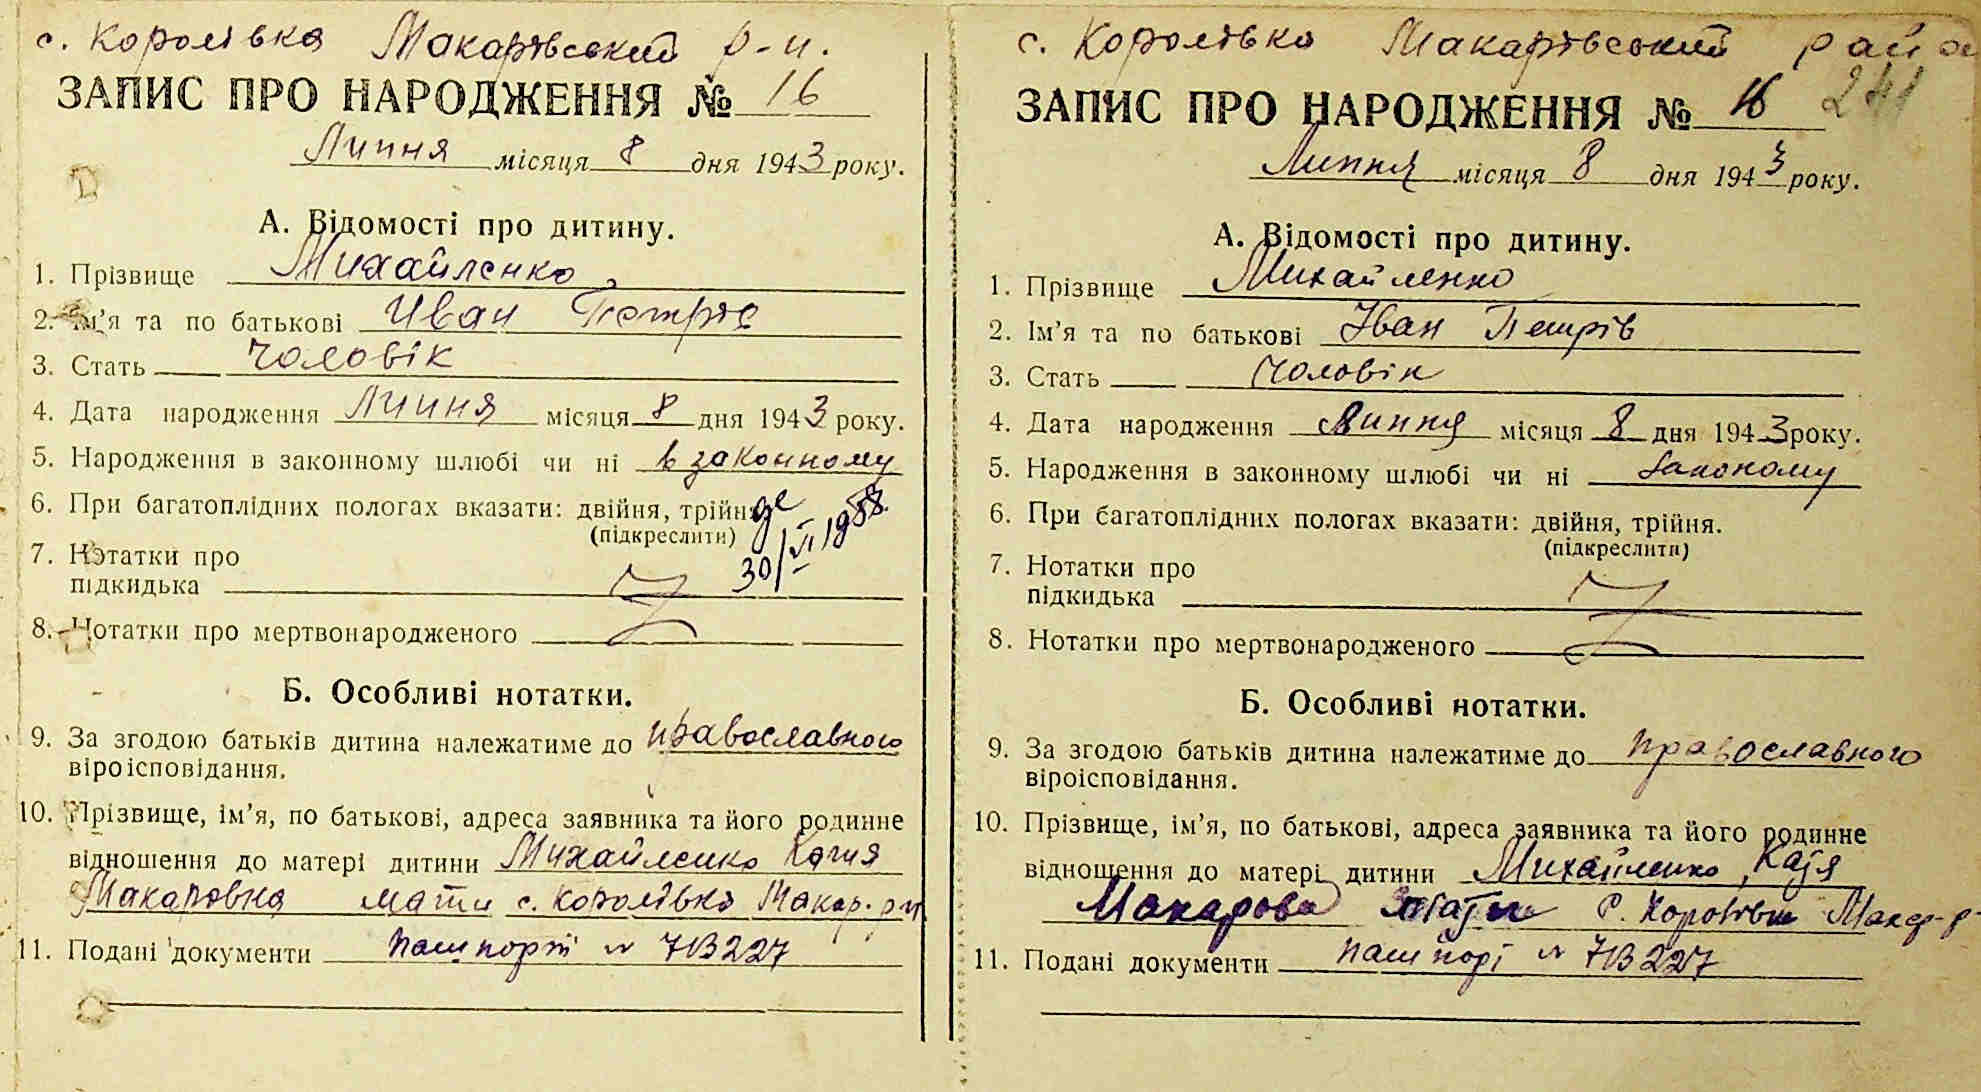 с. Королівка Макарівський р-н.
ЗАПИС ПРО НАРОДЖЕННЯ № 16
Липня місяця 8 дня 1943 року.
А. Відомості про дитину.
1. Прізвище Михайленко
2. Ім’я та по батькові Иван Петрів
3. Стать чоловік
4. Дата народження Липня місяця 8 дня 1943 року.
5. Народження в законному шлюбі чи ні в законному
6. При багатоплідних пологах вказати: двійня, трійня
(підкреслити)
30/VI 1958.
7. Нотатки про
підкидька
8. Нотатки про мертвонародженого
Б. Особливі нотатки.
9. За згодою батьків дитина належатиме до православного
віроісповідання.
10. Прізвище, ім’я, по батькові, адреса заявника та його родинне
відношення до матері дитини Михайленко Катя
Макаровна мати с. Королівка Макар. р-н
11. Подані документи пашпорт № 7В227
с. Королівка Макарівський район
ЗАПИС ПРО НАРОДЖЕННЯ № 16 241
Липня місяця 8 дня 1943 року.
А. Відомості про дитину.
1. Прізвище Михайленко
2. Ім’я та по батькові Іван Петрів
3. Стать чоловік
4. Дата народження Липня місяця 8 дня 1943 року.
5. Народження в законному шлюбі чи ні законому
6. При багатоплідних пологах вказати: двійня, трійня.
(підкреслити)
7. Нотатки про
підкидька
8. Нотатки про мертвонародженого
Б. Особливі нотатки.
9. За згодою батьків дитина належатиме до православного
віроісповідання.
10. Прізвище, ім’я, по батькові, адреса заявника та його родинне
відношення до матері дитини Михайленко, Катя
Макарова мати с. Королівка Макар-р
11. Подані документи пашпорт № 7В227